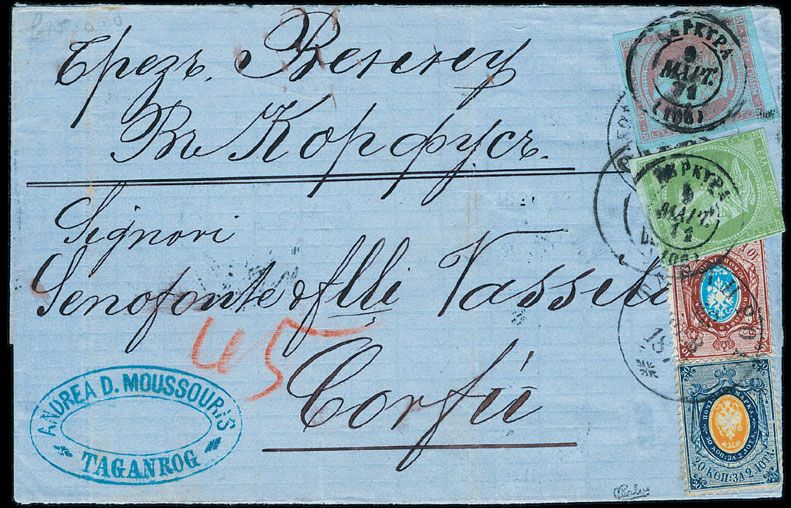 Чрезъ Венецу
Въ Корфусъ.
Signori
Senofonte & flli Vasseli
Corfù
45
ANDREA D. MOUSSOURIS
TAGANROG
ΚΕΡΚΥΡΑ
9
ΜΑΡΤ.
71
(106)
ΚΕΡΚΥΡΑ
9
ΜΑΡΤ.
71
(106)
20 КОП: ЗА 2 ЛОТА.